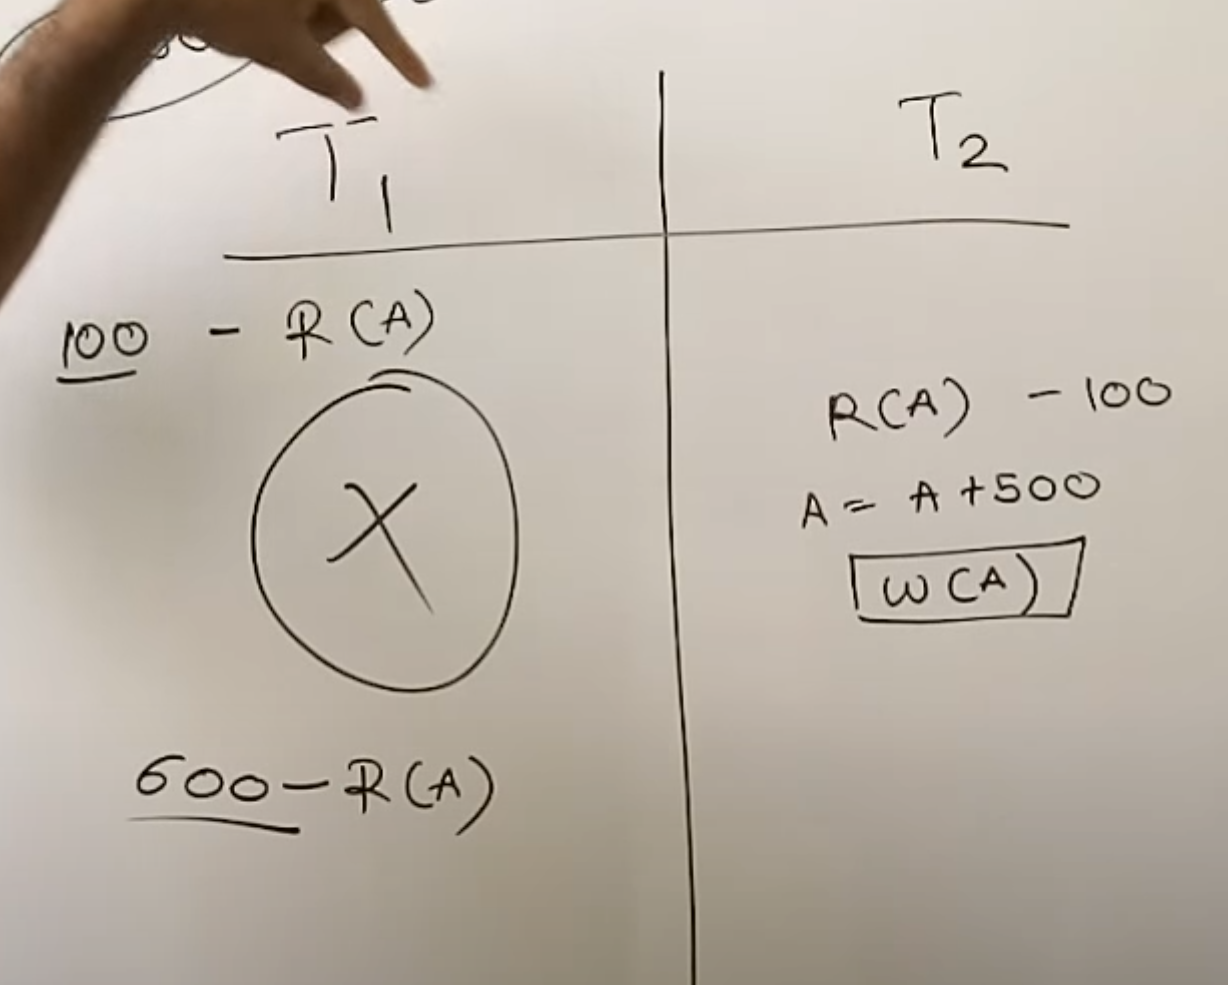 T1 T2
100 - R(A)
R(A) - 100
A = A +500
X
W(A)
600 - R(A)